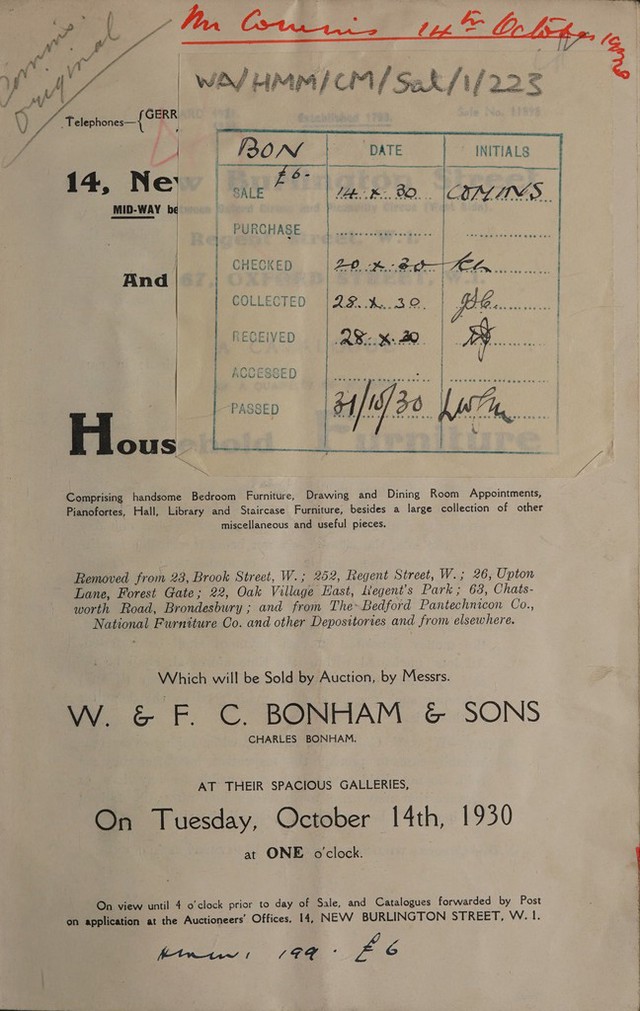 Mr Comins 14th October 1930
Comins.
Original
WA/HMM/CM/Sal/1/223
Telephones—{GERR
Established 1793.
BON DATE INITIALS
SALE £6- 14.X.30 COMINS
PURCHASE
CHECKED 20.X.30
COLLECTED 28.X.30
RECEIVED 28.X.30
ACCESSED
PASSED 31/10/30
14, New Burlington Street
MID-WAY be
Regent Street, W.1
And 67, OXFORD
Household Furniture
Comprising handsome Bedroom Furniture, Drawing and Dining Room Appointments,
Pianofortes, Hall, Library and Staircase Furniture, besides a large collection of other
miscellaneous and useful pieces.
Removed from 23, Brook Street, W.; 252, Regent Street, W.; 26, Upton
Lane, Forest Gate; 22, Oak Village East, Regent's Park; 63, Chats-
worth Road, Brondesbury; and from The Bedford Pantechnicon Co.,
National Furniture Co. and other Depositories and from elsewhere.
Which will be Sold by Auction, by Messrs.
W. & F. C. BONHAM & SONS
CHARLES BONHAM.
AT THEIR SPACIOUS GALLERIES,
On Tuesday, October 14th, 1930
at ONE o'clock.
On view until 4 o'clock prior to day of Sale, and Catalogues forwarded by Post
on application at the Auctioneers' Offices, 14, NEW BURLINGTON STREET, W. I.
199. £6